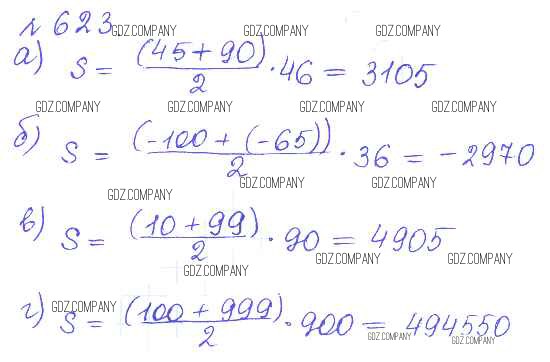 № 623 GDZ.COMPANY GDZ.COMPANY GDZ.COMPANY
а) S = (45 + 90)/2 · 46 = 3105
GDZ.COMPANY GDZ.COMPANY GDZ.COMPANY GDZ.COMPANY
б) S = (-100 + (-65))/2 · 36 = -2970
GDZ.COMPANY GDZ.COMPANY GDZ.COMPANY
в) S = (10 + 99)/2 · 90 = 4905
GDZ.COMPANY GDZ.COMPANY GDZ.COMPANY
г) GDZ.COMPANY S = (100 + 999)/2 · 900 = 494550
GDZ.COMPANY GDZ.COMPANY